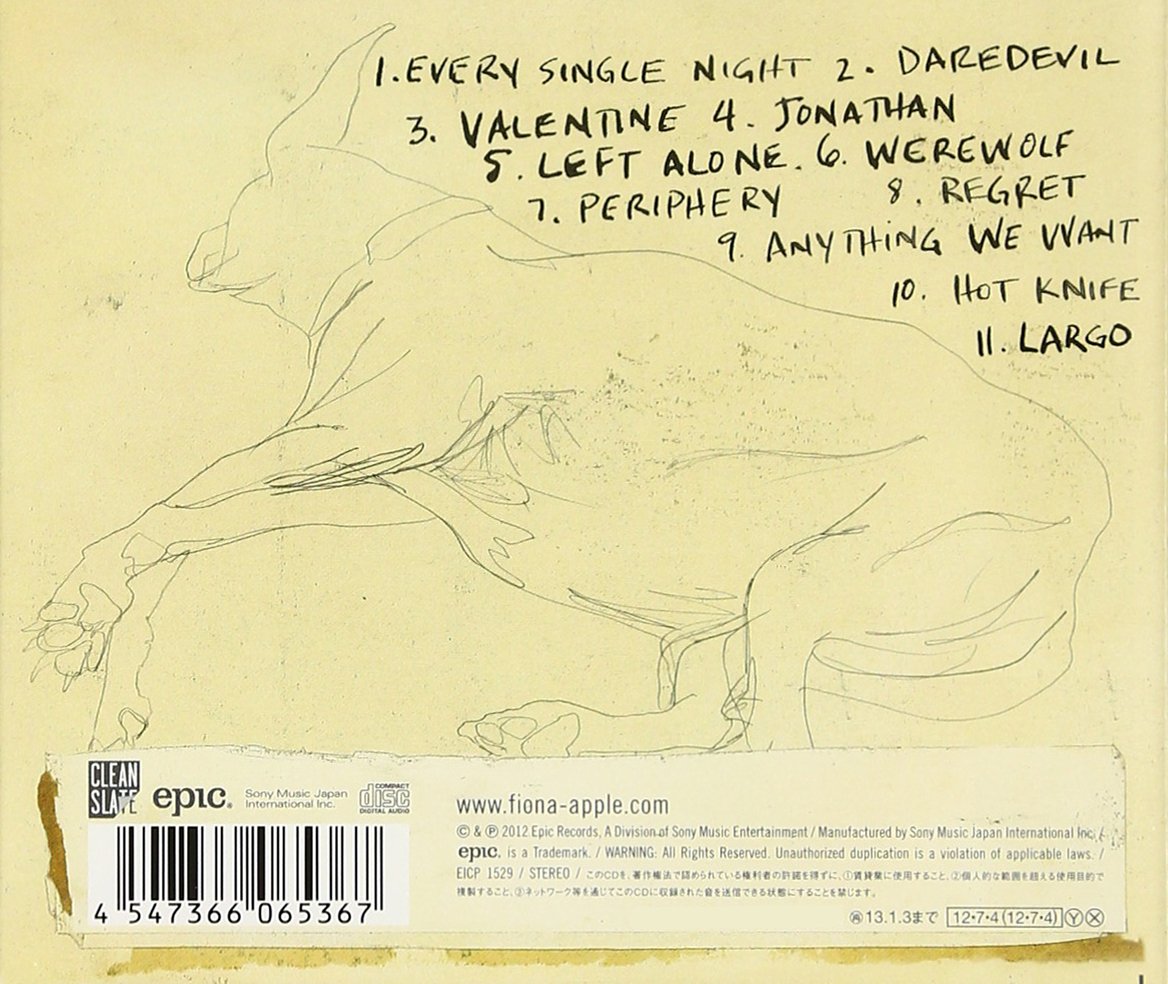 1. EVERY SINGLE NIGHT 2. DAREDEVIL
3. VALENTINE 4. JONATHAN
5. LEFT ALONE. 6. WEREWOLF
7. PERIPHERY 8. REGRET
9. ANYTHING WE WANT
10. HOT KNIFE
11. LARGO
CLEAN
SLATE
epic®
Sony Music Japan
International Inc.
COMPACT
disc
DIGITAL AUDIO
4 547366 065367
www.fiona-apple.com
© & ℗ 2012 Epic Records, A Division of Sony Music Entertainment / Manufactured by Sony Music Japan International Inc. /
epic. is a Trademark. / WARNING: All Rights Reserved. Unauthorized duplication is a violation of applicable laws. /
EICP 1529 / STEREO / このCDを、著作権法で認められている権利者の許諾を得ずに、①賃貸業に使用すること、②個人的な範囲を超える使用目的で
複製すること、③ネットワーク等を通じてこのCDに収録された音を送信できる状態にすることを禁じます。
㊢13.1.3まで 12・7・4 (12・7・4) Ⓨ Ⓧ